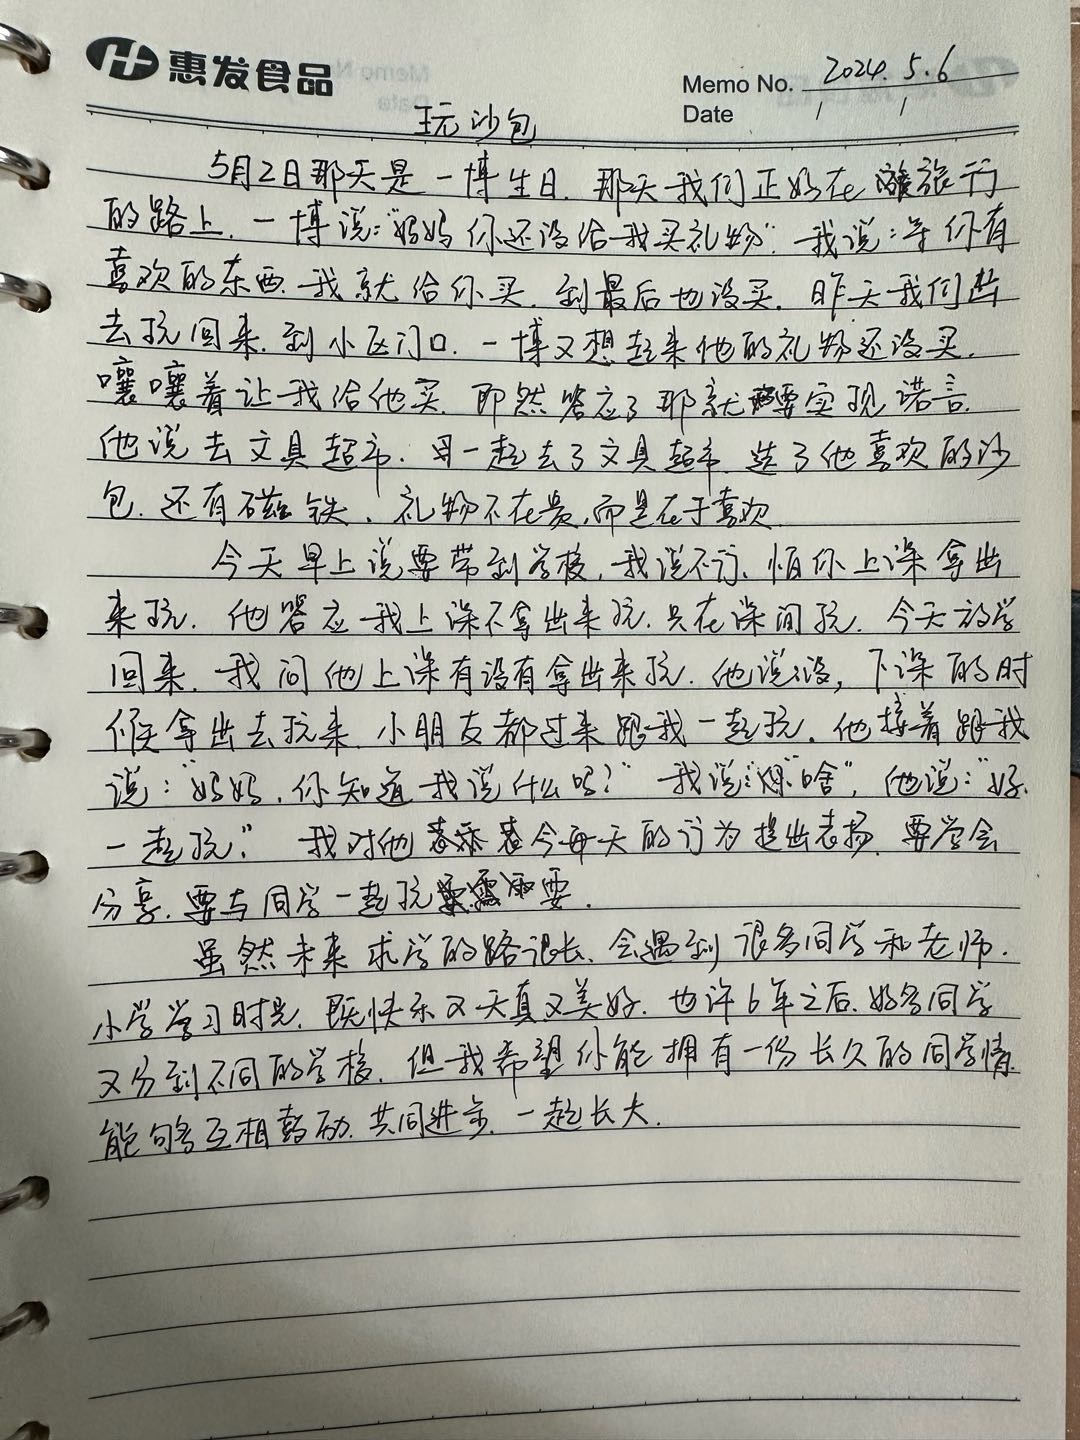 惠发食品
Memo No. 2024.5.6
Date / /
玩沙包
5月2日那天是一博生日.那天我们正好在旅行
的路上.一博说:"妈妈你还没给我买礼物".我说:等你有
喜欢的东西.我就给你买.到最后也没买.昨天我们出
去玩回来.到小区门口.一博又想起来他的礼物还没买.
嚷嚷着让我给他买.即然答应了那就要实现诺言.
他说去文具超市.一起去了文具超市.选了他喜欢的沙
包.还有磁铁.礼物不在贵,而是在于喜欢.
今天早上说要带到学校.我说不行.怕你上课拿出
来玩.他答应我上课不拿出来玩.只在课间玩.今天放学
回来.我问他上课有没有拿出来玩.他说没,下课的时
候拿出去玩来.小朋友都过来跟我一起玩.他接着跟我
说:"妈妈.你知道我说什么吗?"我说:"啥",他说:"好.
一起玩."我对他今天的行为提出表扬.要学会
分享.要与同学一起玩要.
虽然未来求学的路很长.会遇到很多同学和老师.
小学学习时光.既快乐又天真又美好.也许6年之后.好多同学
又分到不同的学校.但我希望你能拥有一份长久的同学情.
能够互相鼓励.共同进步.一起长大.